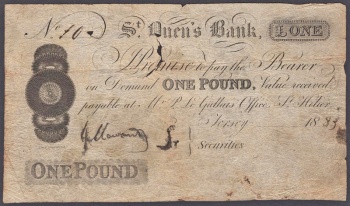 No. 10 St. Ouen's Bank, £ ONE
I Promise to pay the Bearer
on Demand ONE POUND, Value received
payable at Mr. P. Le Gallais Office, St. Helier
Jersey 183
Securities
ONE POUND